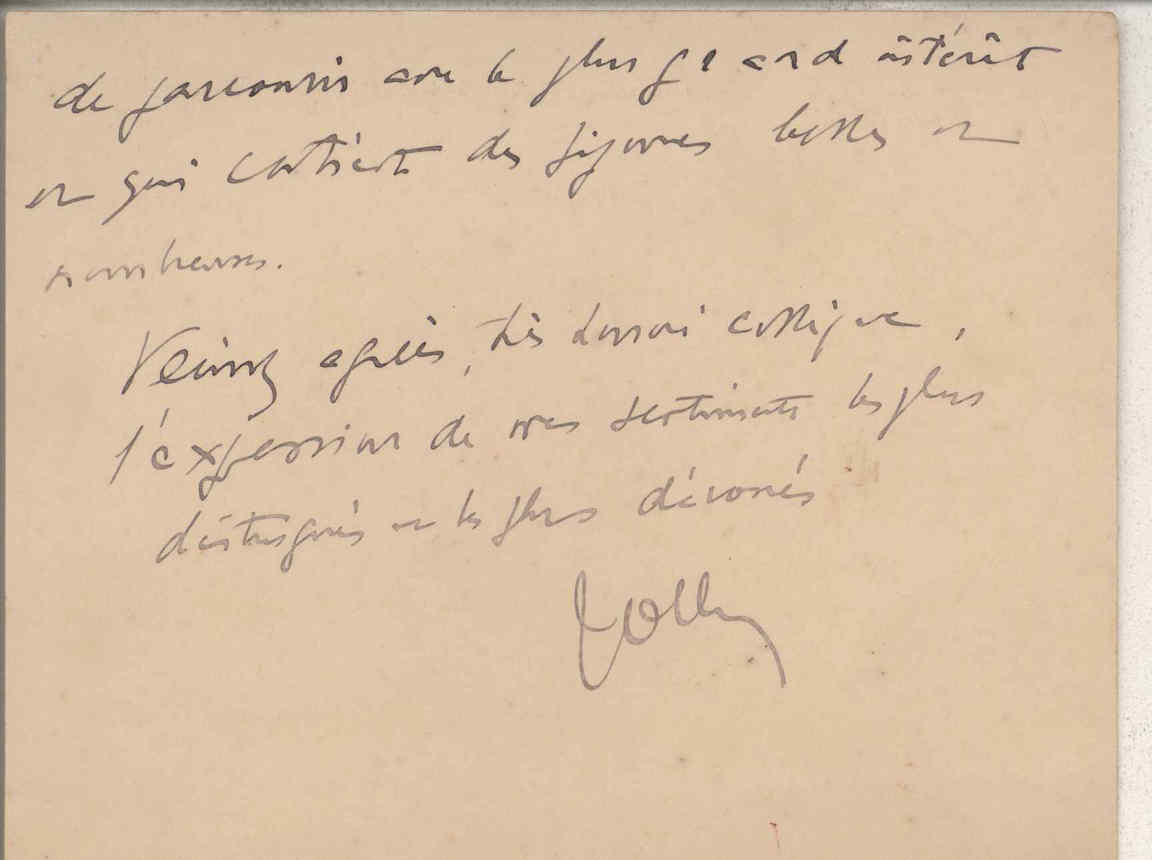 de parcourir avec le plus grand intérêt
et qui contient des figures belles et
nombreuses.
Veuillez agréer, très honoré collègue,
l'expression de mes sentiments les plus
distingués et les plus dévoués